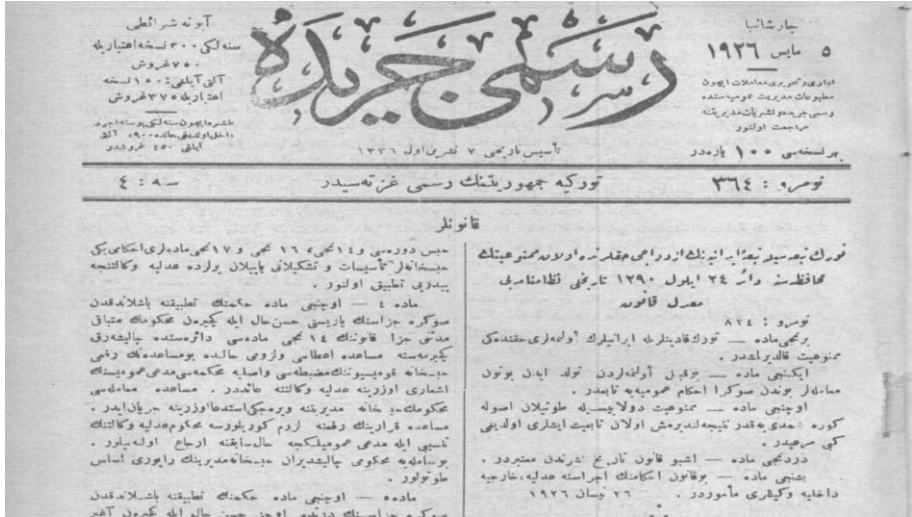 رسمی جریده
چارشانبا
٥ مایس ١٩٢٦
اداری و تحریری معاملات ایچون
مطبوعات مدیریت عمومیه سنده
رسمی جریده و نشریات مدیریتنه
مراجعت اولنور
بر نسخه سی ١٠٠ پاره در
آبونه شرائطی
سنه لکی ٣٠٠ نسخه اعتباریله
٧٥٠ غروش
آلتی آیلغی: ١٥٠ نسخه
اعتباریله ٣٧٥ غروش
تأسیس تاریخی ٧ تشرین اول ١٣٣٦
نومرو : ٣٦٤
تورکیه جمهوریتنك رسمی غزته سیدر
سنه : ٤
قانونلر
تورك تبعه سیله تبعۀ ایرانیه نك ازدواجی حقلرنده اولان ممنوعیتك
محافظه سنه دائر ٢٤ ایلول ١٢٩٠ تاریخلی نظامنامه یی
معدل قانون
نومرو : ٨٢٤
برنجی ماده — تورك قادینلرله ایرانیلرك أولنمه لری حقنده کی
ممنوعیت قالدیرلمشدر .
ایکنجی ماده — بوقبیل أولنمه لردن تولد ایدن بوتون
معامله لر بوندن صوکرا احکام عمومیه یه تابعدر .
اوچنجی ماده — ممنوعیت دولاییسیله طوتیلان اصوله
کوره شمدی یه قدر نتیجه لندیرمش اولان تابعیت ایشلری اولدیغی
کبی مرعیدر .
دردنجی ماده — اشبو قانون تاریخ نشرندن معتبردر .
بشنجی ماده — بوقانون احکامنك اجراسنه عدلیه ، خارجیه
داخلیه وکیللری مأموردر . ٢٦ نیسان ١٩٢٦
حبس دوره سی و ١٤ نجی ، ١٦ نجی و ١٧ نجی ماده لری احکامی یکی
حبسخانه لر تأسیسات و تشکیلاتی یاپیلان یرلرده عدلیه وکالتنجه
پیدرپی تطبیق اولنور .
ماده ٤ — اوچنجی ماده حکمنك تطبیقنه باشلاندقدن
صوکره جزاسنك یاریسنی حسن حال ایله کچیرن محکومك متباقی
مدتنی جزا قانوننك ١٤ نجی ماده سی دائره سنده چالیشه رق
کچیرمه سنه مساعده اعطاسی ولزومی حالنده بومساعده نك رفعی
حبسخانه قومیسیوننك مضبطه سی واصلیه محکمه سی مدعی عمومیسنك
اشعاری اوزرینه عدلیه وکالتنه عائددر . مساعده معامله سی
محکومك حبسخانه مدیریتنه ویره جکی استدعا اوزرینه جریان ایدر .
مساعده قرارینك رفعنه لزوم کوریلورسه محکوم عدلیه وکالتنك
تنسیبی ایله مدعی عمومیلکجه حال سابقنه ارجاع اولنه بیلور .
بومعامله یه محکومی چالیشدیران حبسخانه مدیرینك راپوری اساس
طوتولور .
ماده ٥ — اوچنجی ماده حکمنك تطبیقنه باشلاندقدن